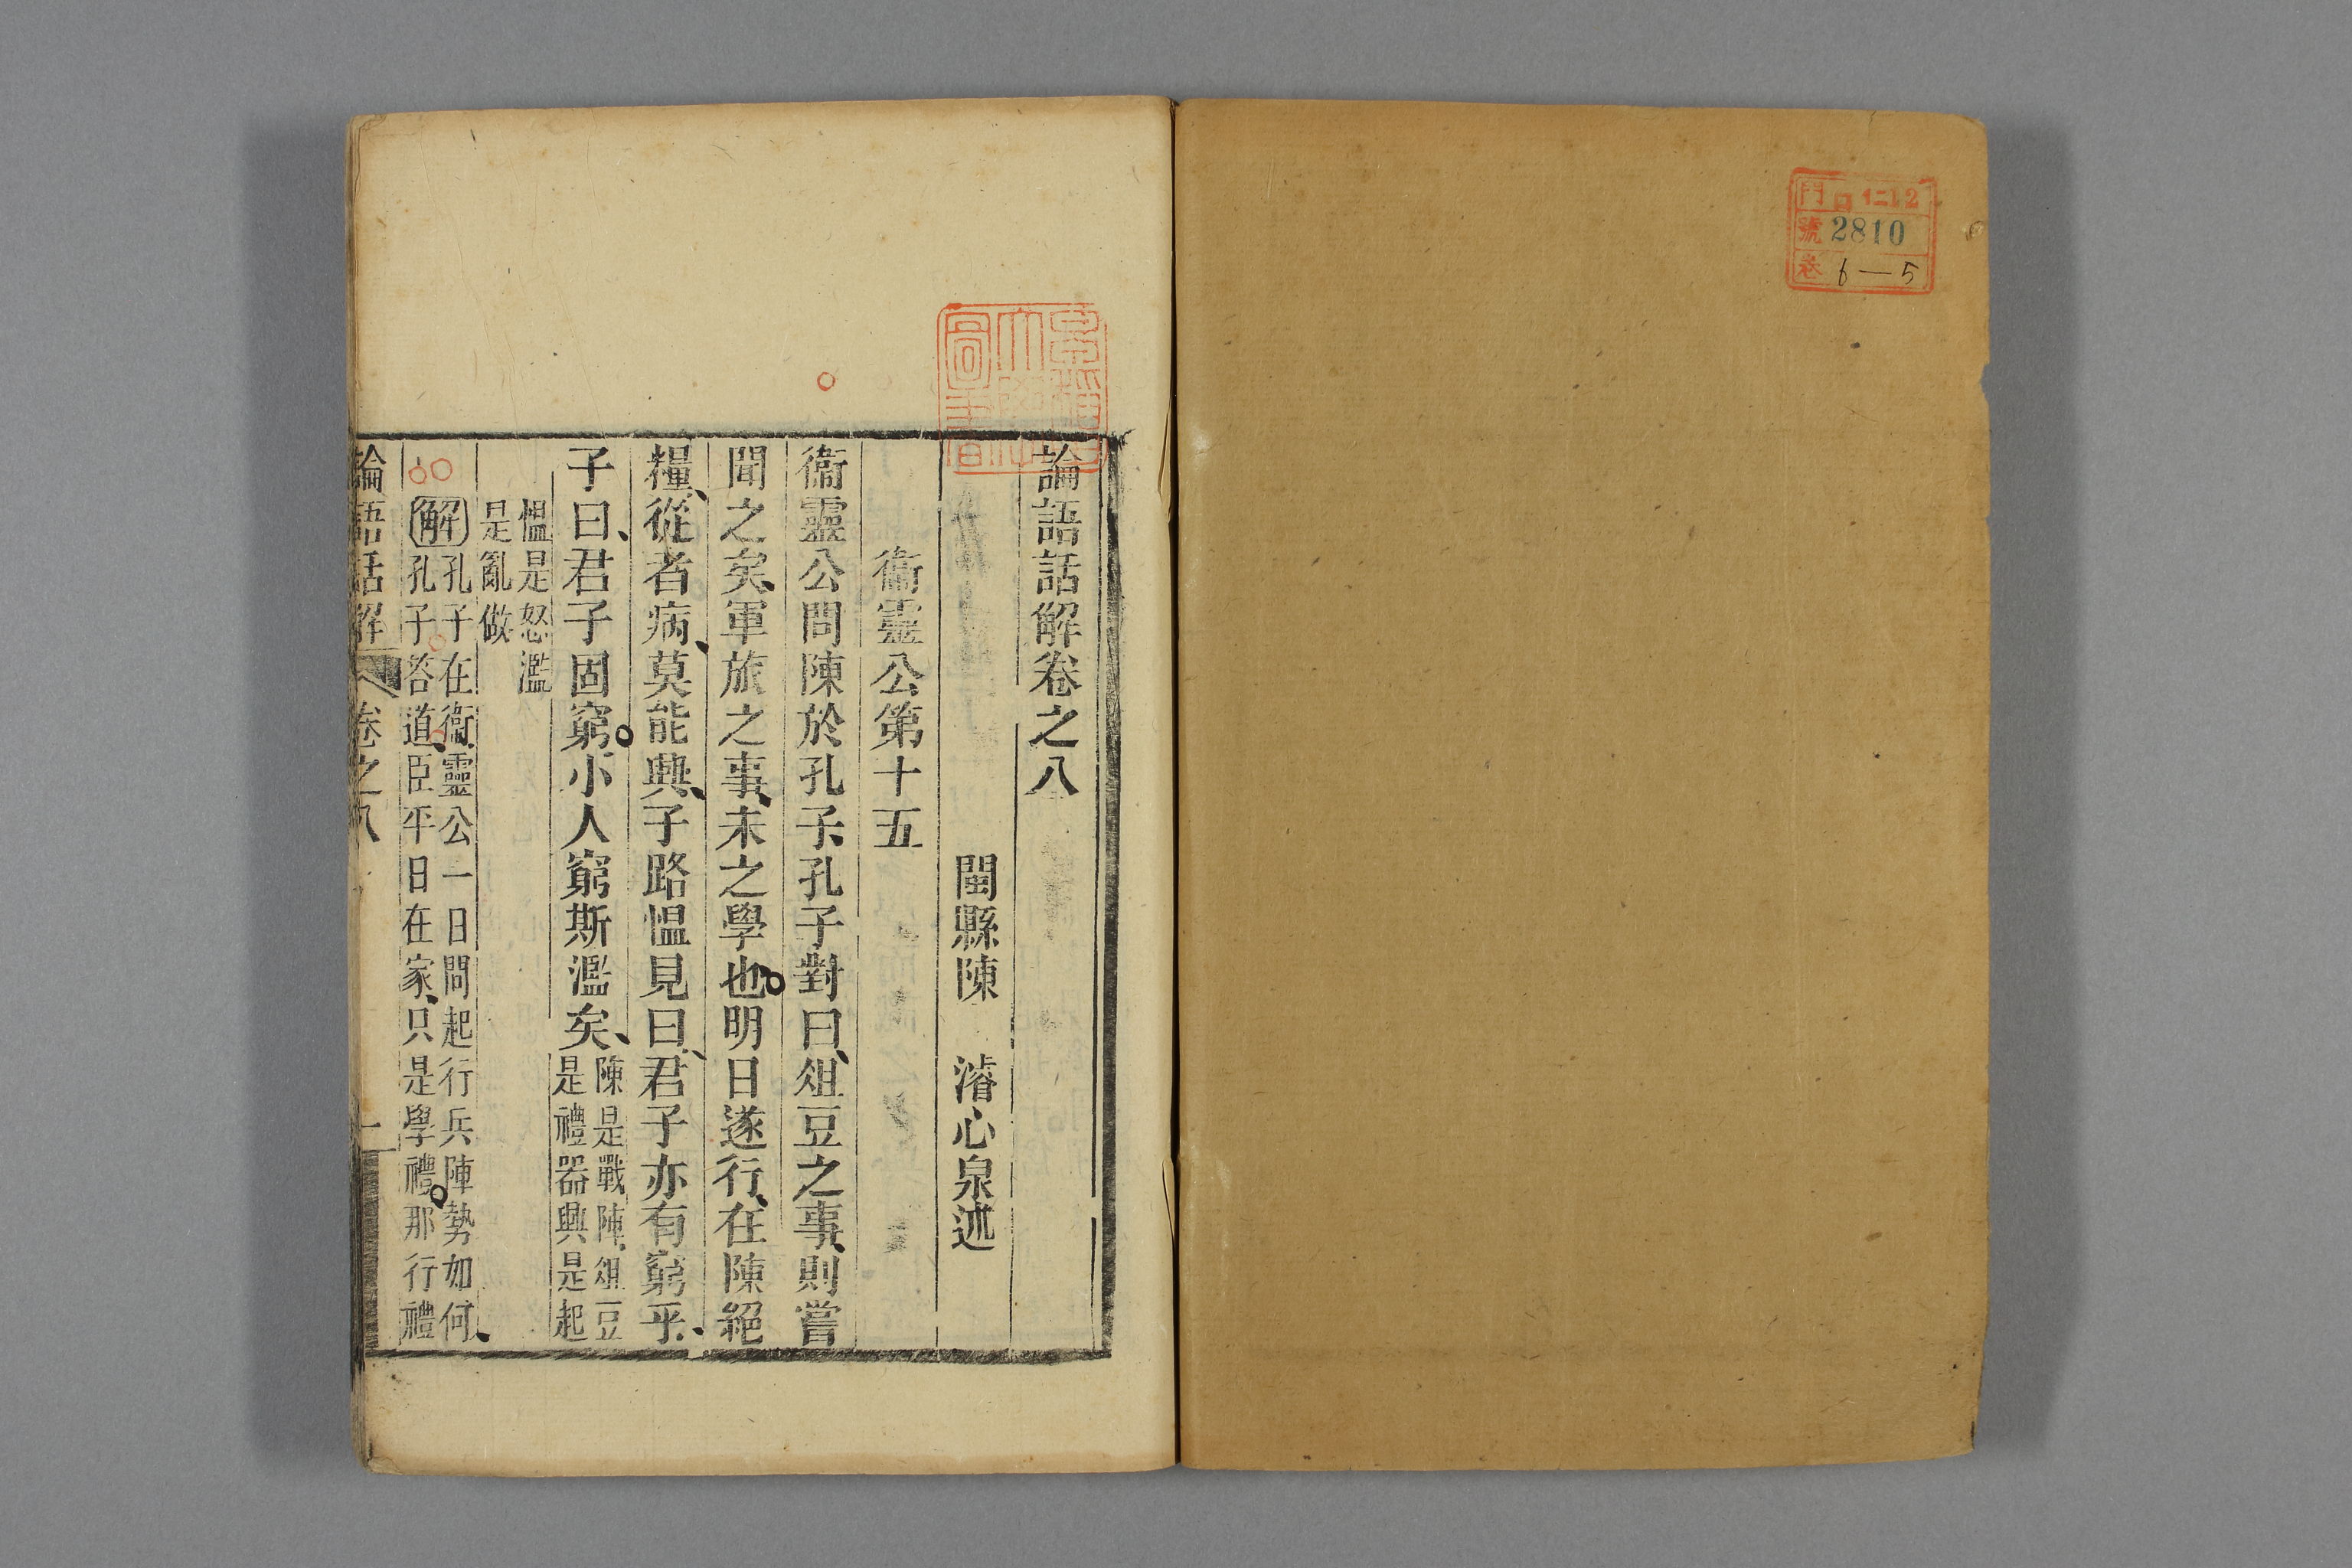 門 口仁12
號 2810
卷 6—5
論語話解卷之八
閩縣陳 濬心泉述
衞靈公第十五
衞靈公問陳於孔子、孔子對曰、俎豆之事、則嘗
聞之矣、軍旅之事、未之學也。明日遂行、在陳絕
糧、從者病、莫能興、子路慍見曰、君子亦有窮乎、
子曰、君子固窮。小人窮斯濫矣、
陳是戰陣、俎豆
是禮器興是起
慍是怒濫
是亂做
解
孔子在衞、靈公一日問起行兵陣勢如何、
孔子荅道、臣平日在家、只是學禮。那行禮
論語話解 卷之八 一